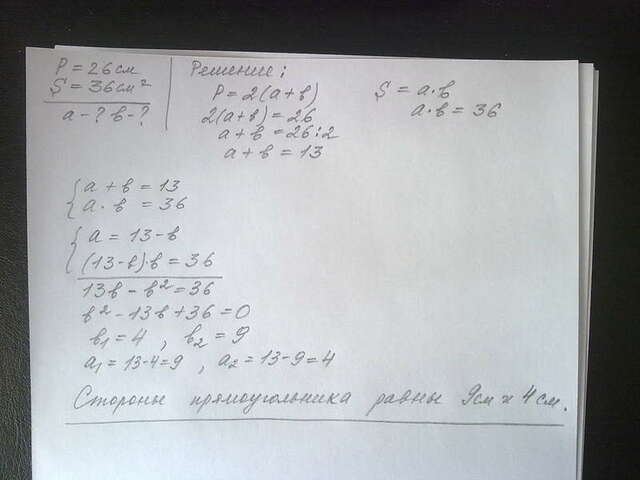 P = 26см
S = 36см²
a - ? в - ?
Решение:
P = 2(a+в)
2(a+в) = 26
a + в = 26:2
a + в = 13
S = a·в
a·в = 36
{ a + в = 13
a · в = 36
{ a = 13-в
(13-в)·в = 36
13в - в² = 36
в² - 13в + 36 = 0
в₁ = 4 , в₂ = 9
a₁ = 13-4=9 , a₂ = 13-9=4
Стороны прямоугольника равны 9см и 4см.